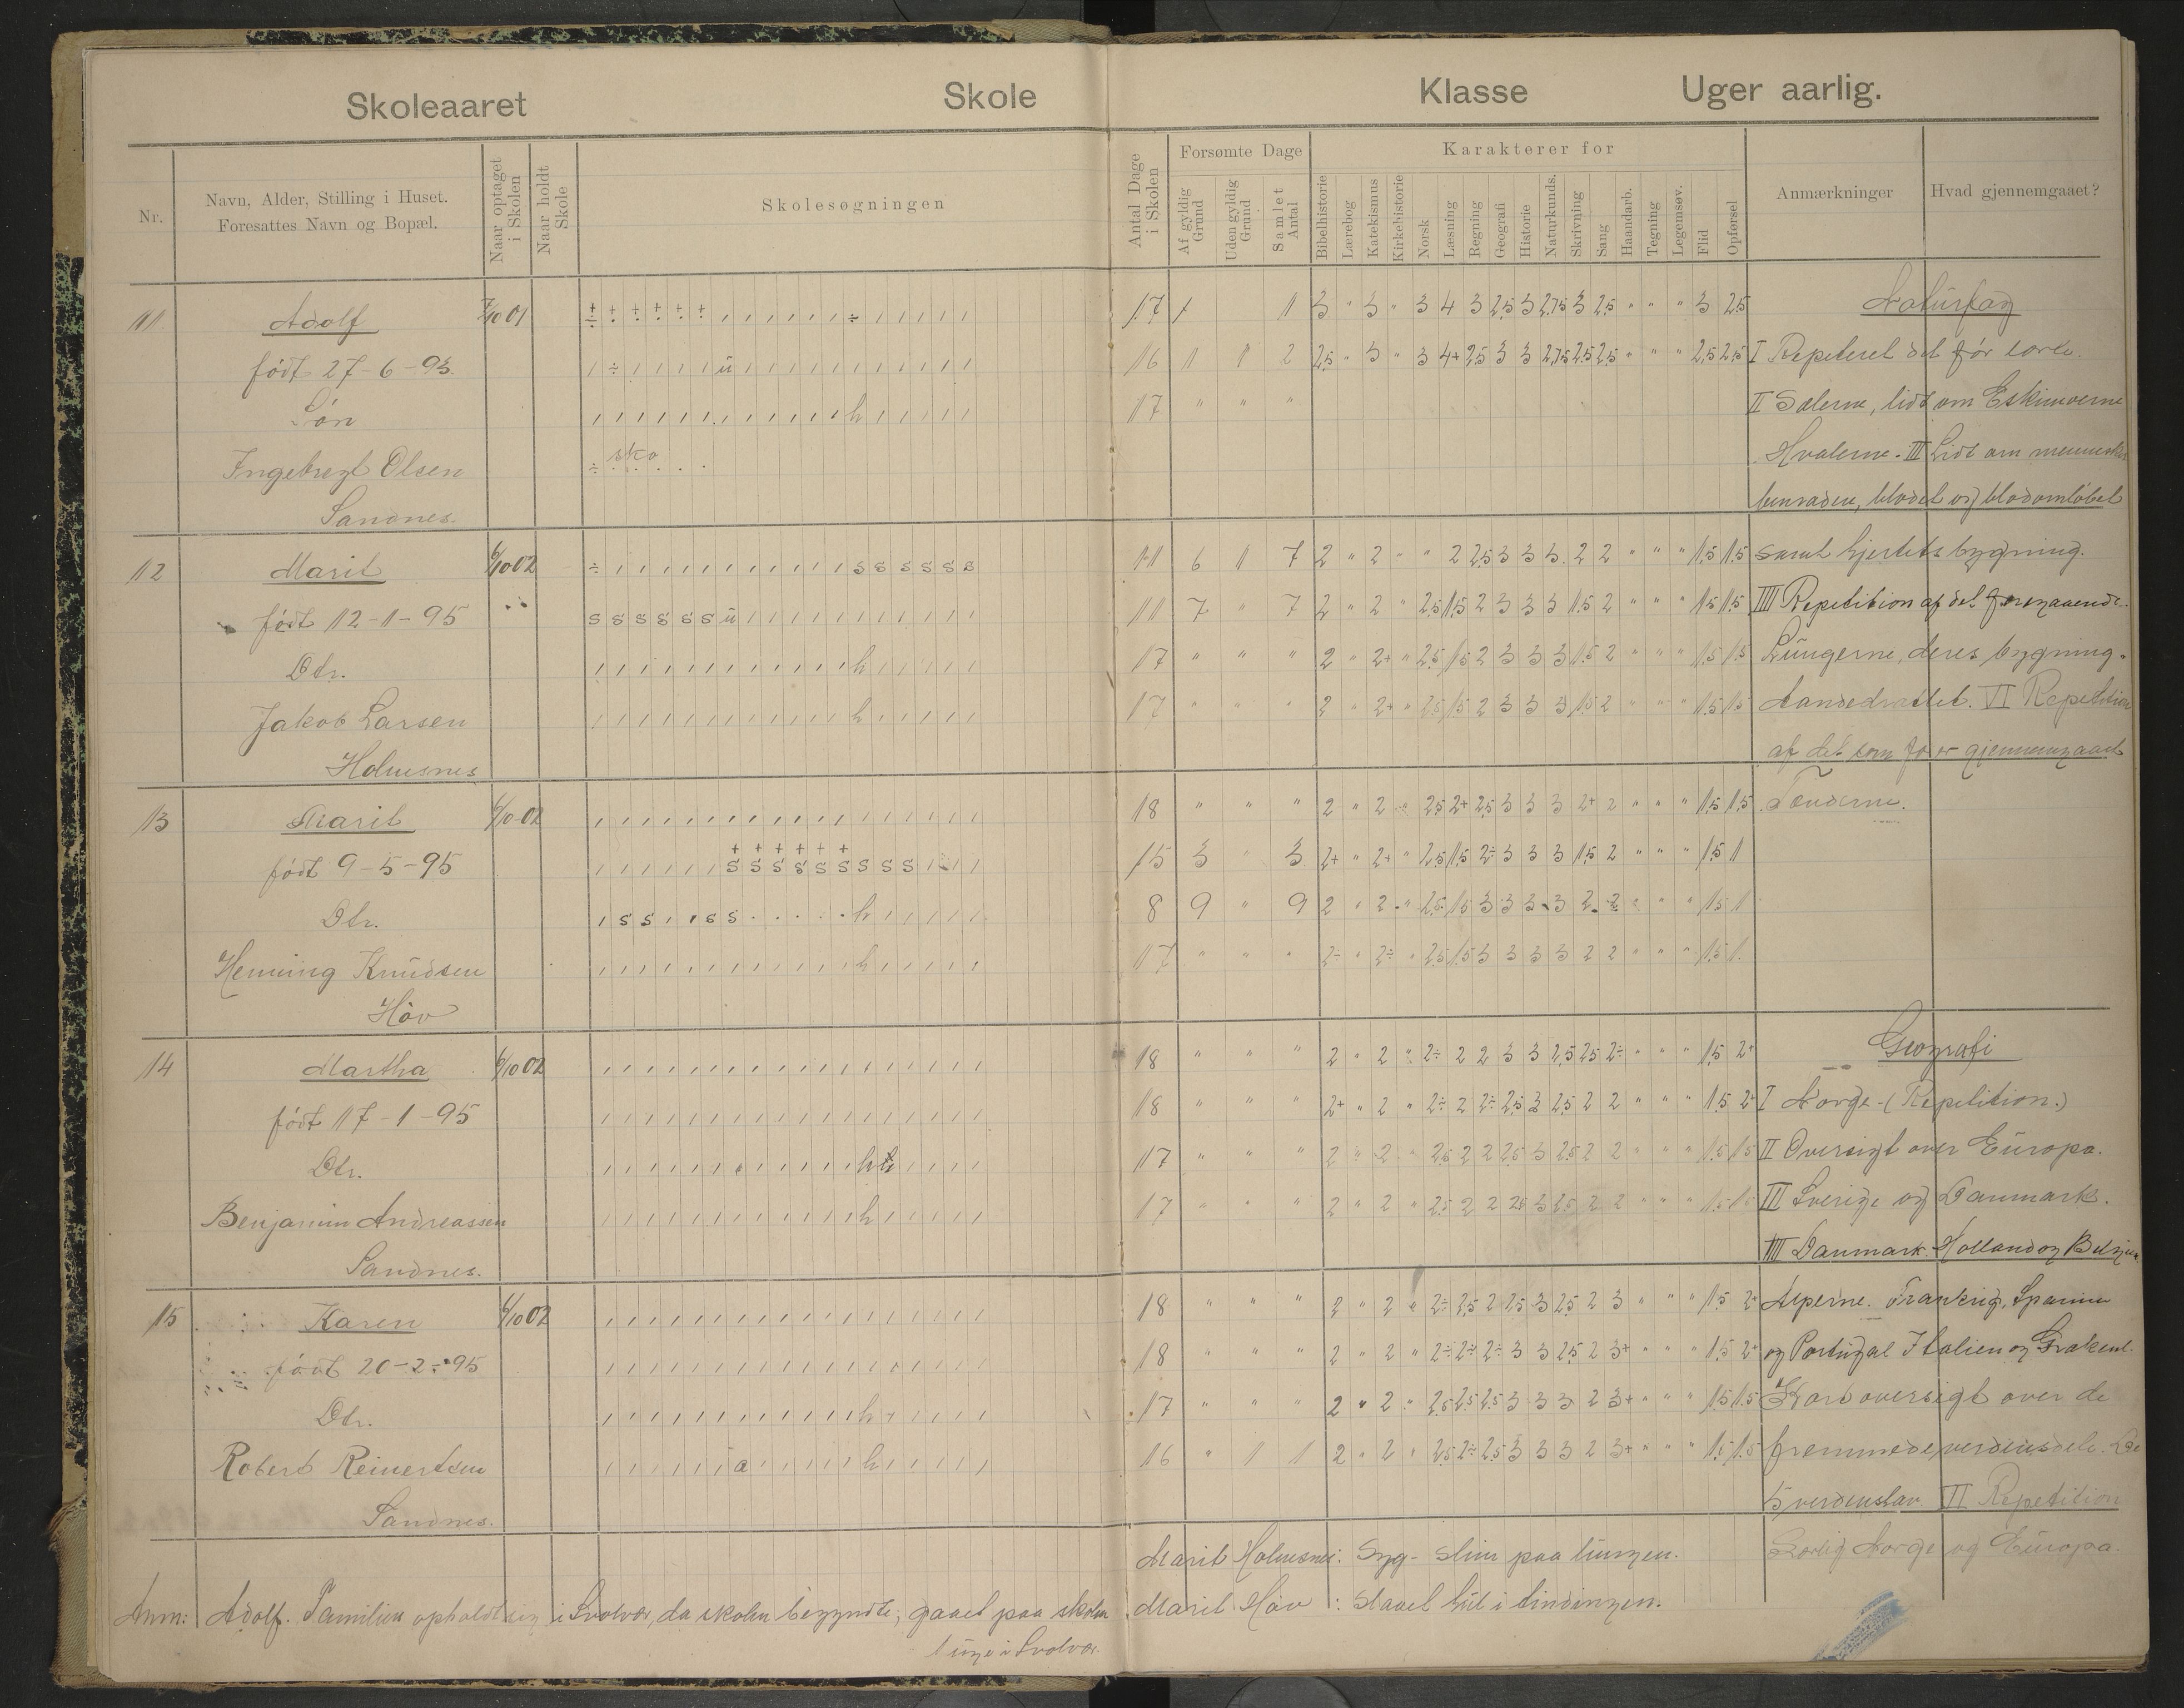 Skoleaaret Skole Klasse Uger aarlig.
Nr.
Navn, Alder, Stilling i Huset.
Foresattes Navn og Bopæl.
Naar optaget i Skolen
Naar holdt Skole
Skolesøgningen
Antal Dage i Skolen
Forsømte Dage
Af gyldig Grund
Uden gyldig Grund
Samlet Antal
Karakterer for
Bibelhistorie
Lærebog
Katekismus
Kirkehistorie
Norsk
Læsning
Regning
Geografi
Historie
Naturkunds.
Skrivning
Sang
Haandarb.
Tegning
Legemsøv.
Flid
Opførsel
Anmærkninger
Hvad gjennemgaaet?
11 Adolf 7/10 01 17 1 1 3 " 3 " 3 4 3 2,5 3 2,75 3 2,5 " " " 3 2,5
født 27-6-93. 16 1 1 2 2,5 " 3 " 3 4+ 2,5 3 3 2,75 2,5 2,5 " " " 2,5 2,5
Søn h 17 " " "
Ingebregt Olsen sko
Sandnes.
12 Marit 6/10 02 s s s s s s 11 6 1 7 2 " 2 " " 2 2,5 3 3 3 2 2 " " " 1,5 1,5
født 12-1-95 s s s s s s u 11 7 " 7 2 " 2 " 2,5 1,5 2 3 3 3 1,5 2 " " " 1,5 1,5
Dtr. h 17 " " " 2 " 2+ " 2,5 1,5 2 3 3 3 1,5 2 " " " 1,5 1,5
Jakob Larsen h 17 " " " 2 " 2+ " 2,5 1,5 2 3 3 3 1,5 2 " " " 1,5 1,5
Holmesnes
13 Marit 6/10-02 18 " " " 2 " 2 " 2,5 2+ 2,5 3 3 3 2+ 2 " " " 1,5 1,5
født 9-5-95 s s s s s s s s s 15 3 " 3 2+ " 2+ " 2,5 1,5 2÷ 3 3 3 1,5 2 " " " 1,5 1
Dtr. s s s s h 8 9 " 9 2 " 2 " 2,5 1,5 3 3 3 3 2 2 " " " 1,5 1
Henning Knudsen h 17 " " " 2÷ " 2÷ " 2,5 1,5 3 3 3 3 2 2 " " " 1,5 1
Høv
14 Martha 6/10 02 18 " " " 2 " 2 " 2÷ 2 2 3 3 2,5 2,5 2÷ " " " 1,5 2+
født 17-1-95 18 " " " 2+ " 2 " 2÷ 2 2÷ 2,5 3 2,5 2 2 " " " 1,5 2+
Dtr. h 17 " " " 2 " 2 " 2,5 2 2 2,5 3 2,5 2 2 " " " 1,5 1,5
Benjamin Andreassen h 17 " " " 2 " 2 " 2,5 2 2 2,5 3 2,5 2 2 " " " 1,5 1,5
Sandnes.
15 Karen 6/10 02 18 " " " 2 " 2 " 2÷ 2,5 2 2,5 3 2,5 2 3 " " " 1,5 2+
født 20-2-95 18 " " " 2 " 2 " 2÷ 2÷ 2÷ 3 3 2,5 2 3+ " " " 1,5 2+
Dtr. h 17 " " " 2 " 2 " 2,5 2,5 2,5 3 3 3 2 3+ " " " 1,5 1,5
Robert Reinertsen a h 16 " 1 1 2 " 2 " 2,5 2÷ 2,5 3 3 3 2 3+ " " " 1,5 1,5
Sandnes.
Naturfag
I Repeteret det før lærte.
II Sælerne, lidt om Eskimoerne
Hvalerne. III Lidt om mennesket
benraden, blodet og blodomløbet
samt hjertets bygning.
IIII Repetition af det foregaaende.
Lungerne, deres bygning.
Aandedrættet. VI Repetition
af det som før er gjennemgaaet
Tænderne.
Geografi
I Norge-(Repetition.)
II Oversigt over Europa.
III Sverige og Danmark.
IIII Danmark. Holland og Belgien
Alperne. Frankrig, Spanien
og Portugal Italien og Grækenl.
Kort oversigt over de
fremmede verdensdele. De
5 verdenshav VI Repetition
Særlig Norge og Europa.
Marit Holmesnes: Syg- slim paa lungen.
Marit Høv : Slaaet hul i tindingen.
Anm: Adolf. Familien opholdt sig i Svolvær, da skolen begyndte; gaaet paa skolen
1 uge i Svolvær.